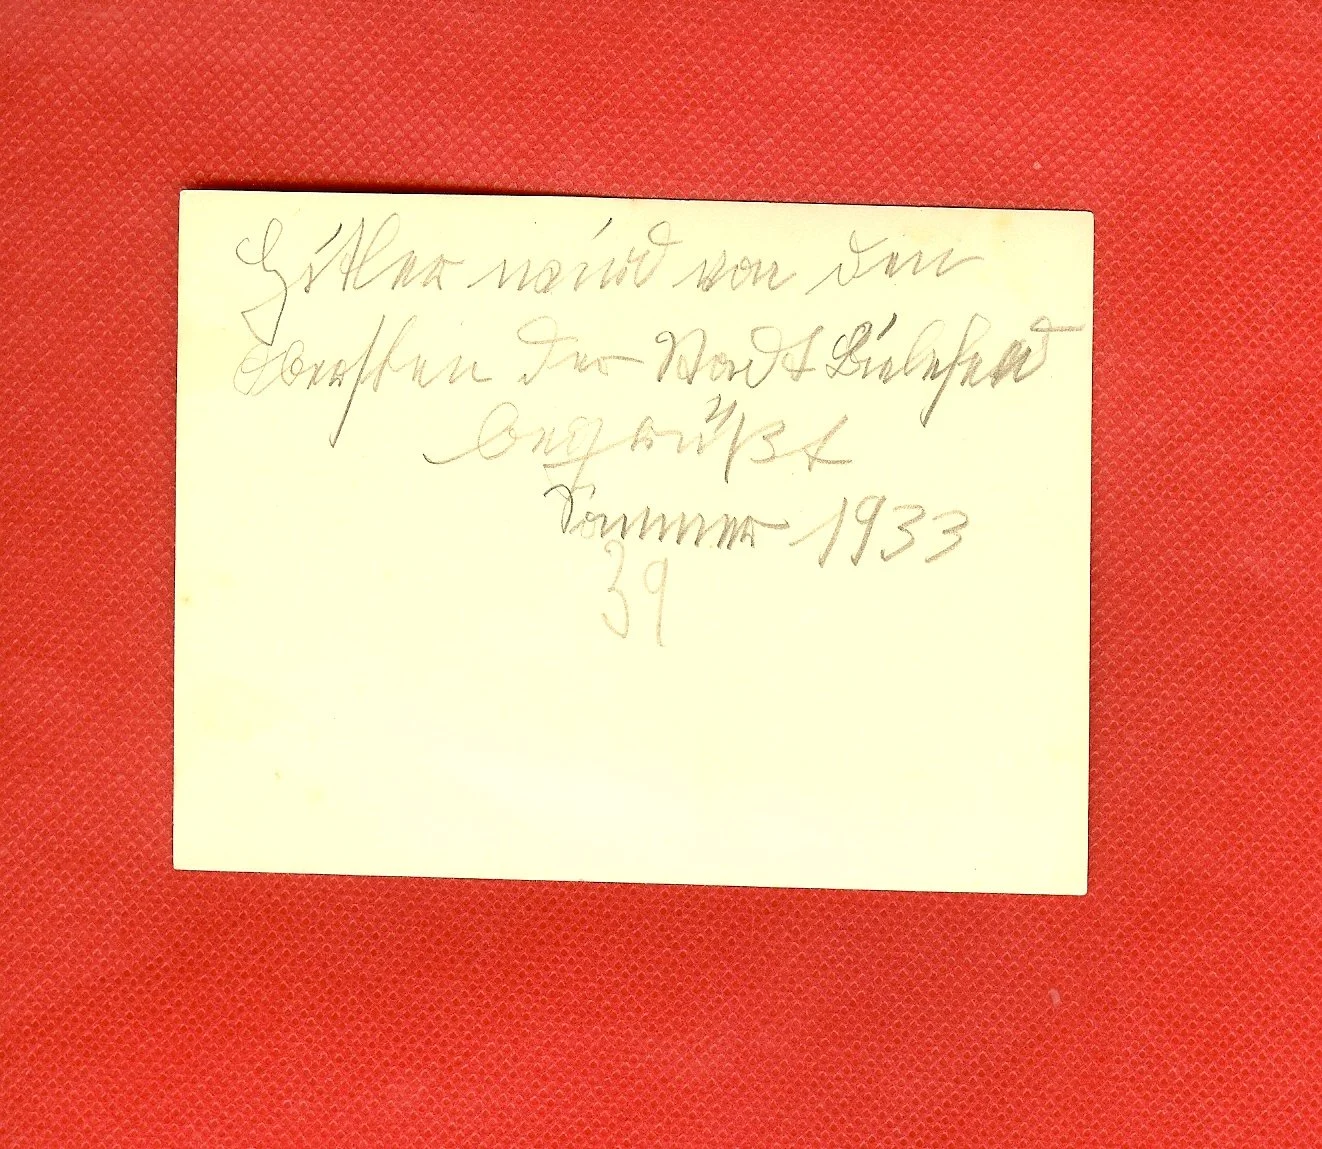 Hitler wird von den
Obersten der Stadt Bielefeld
begrüßt
Sommer 1933
39